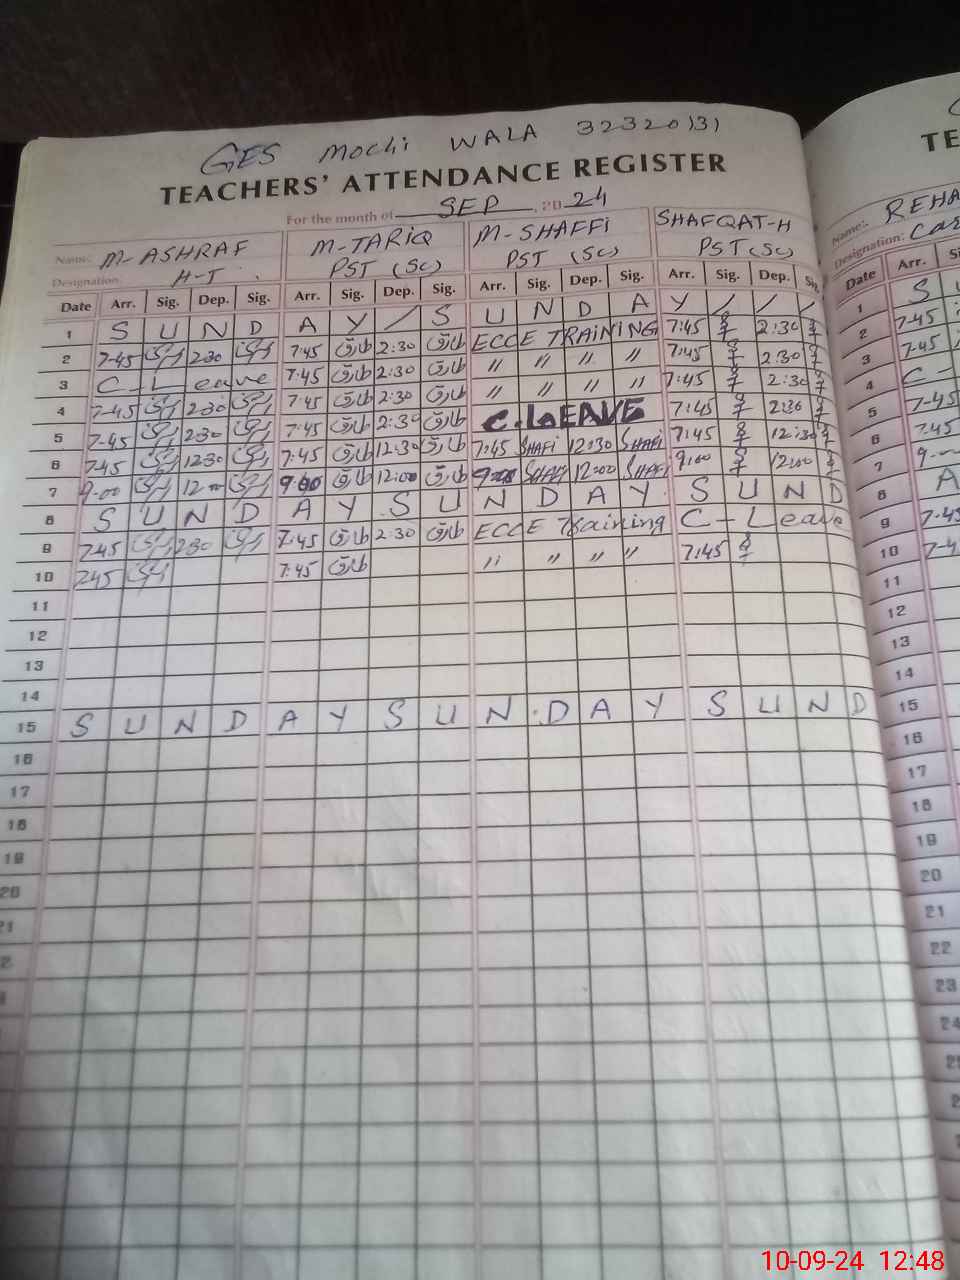 GES Mochi WALA 32320131
TEACHERS' ATTENDANCE REGISTER
For the month of SEP, 20 24
Name: M-ASHRAF M-TARIQ M-SHAFFI SHAFQAT-H
Designation: H-T PST (SC) PST (SC) PST (SC)
Date Arr. Sig. Dep. Sig. Arr. Sig. Dep. Sig. Arr. Sig. Dep. Sig. Arr. Sig. Dep. Sig.
1 S U N D A Y / S U N D A Y / / /
2 7-45 2-30 7:45 2:30 ECCE TRAINING 7:45 2:30
3 C - Leave 7:45 2:30 " " " " 7:45 2:30
4 7-45 2-30 7:45 2:30 " " " " 7:45 2:30
5 7-45 2-30 7:45 2:30 C. LEAVE 7:45 2:30
6 7-45 12-30 7:45 12:30 7:45 SHAFi 12:30 SHAFi 7:45 12:30
7 9-00 12-00 9:00 12:00 9:00 SHAFi 12:00 SHAFi 9:00 12:00
8 S U N D A Y S U N D A Y S U N D
9 7-45 2-30 7:45 2:30 ECCE Training C - Leave
10 7-45 7:45 " " " " 7:45
11
12
13
14
15 S U N D A Y S U N D A Y S U N D
16
17
18
19
20
21
TE
Name: REHA
Designation:
Date Arr.
1 S U
2 7-45
3 7-45
4 C -
5 7-45
6 7-45
7 9-
8 A
9 7-45
10 7-4
11
12
13
14
15
16
17
18
19
20
21
22
23
24
10-09-24 12:48